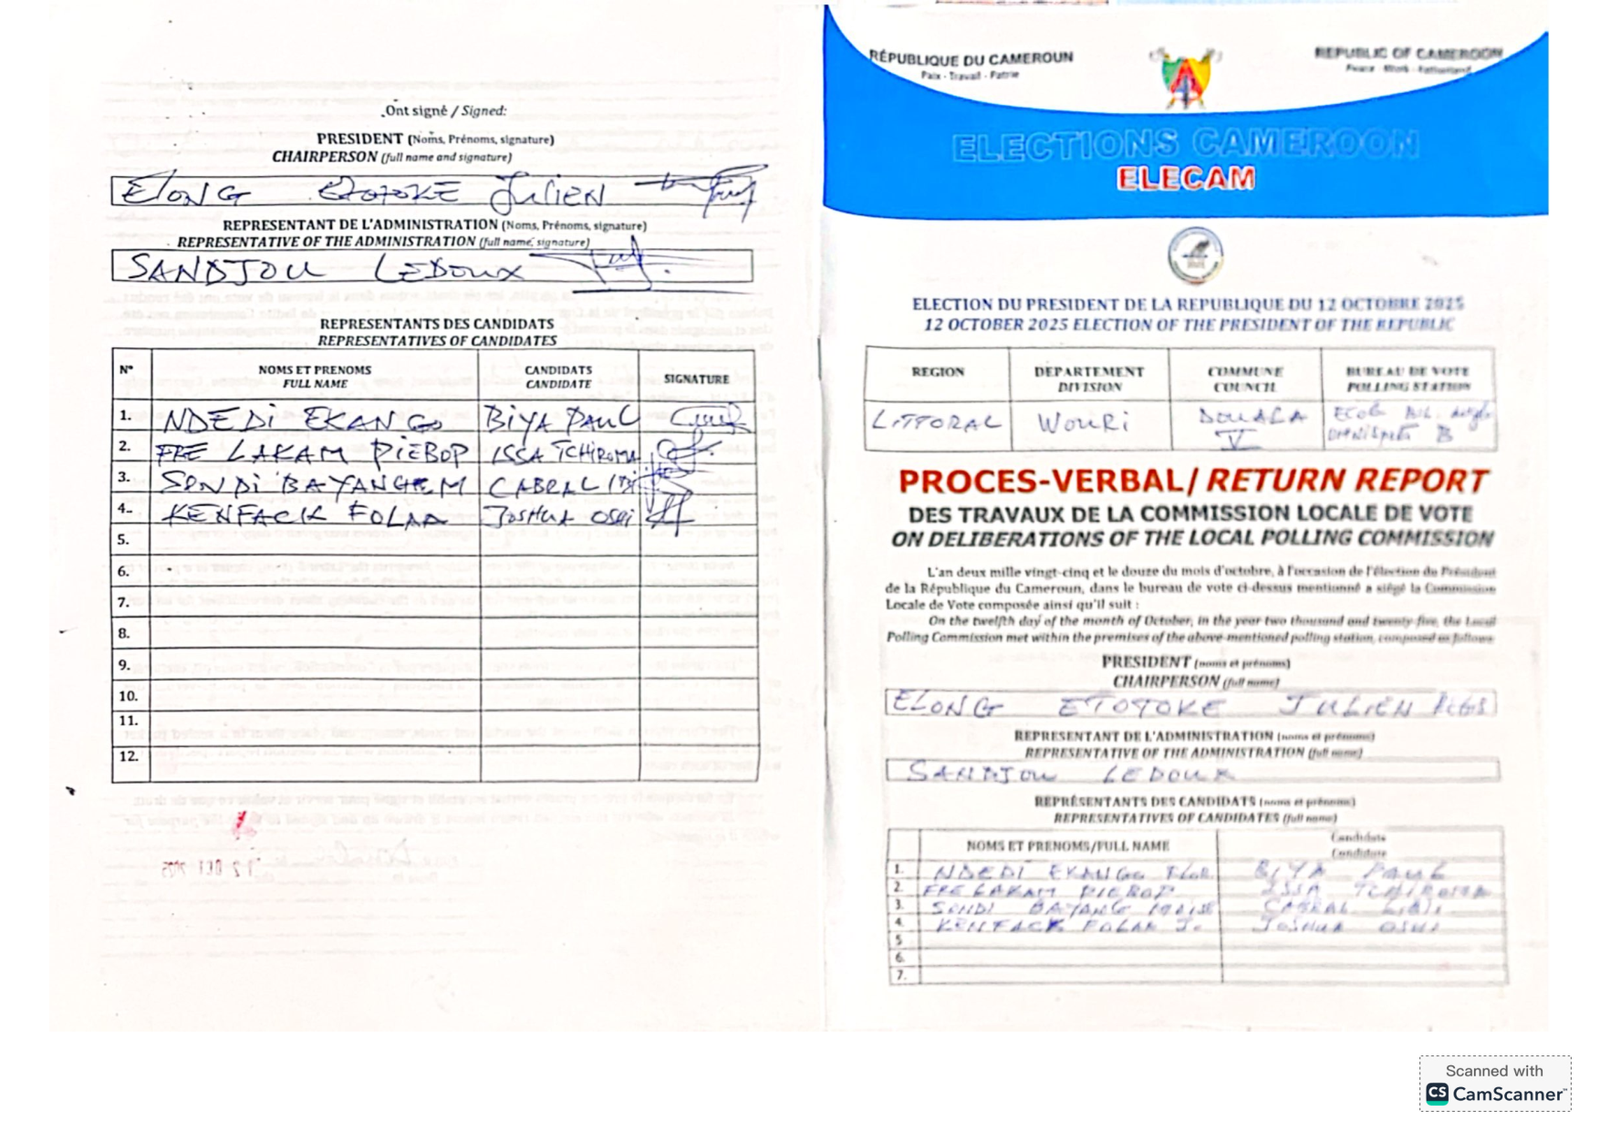 Ont signé / Signed:
PRESIDENT (Noms, Prénoms, signature)
CHAIRPERSON (full name and signature)
ELONG ETOTOKE JULIEN
REPRESENTANT DE L'ADMINISTRATION (Noms, Prénoms, signature)
REPRESENTATIVE OF THE ADMINISTRATION (full name, signature)
SANDJOU LEDOUX
REPRESENTANTS DES CANDIDATS
REPRESENTATIVES OF CANDIDATES
N° NOMS ET PRENOMS FULL NAME CANDIDATS CANDIDATE SIGNATURE
1. NDEDI EKANGO BIYA PAUL
2. FRE LAKAM DIEBOP ISSA TCHIROMA
3. SENDI BAYANGHEM CABRAL
4. KENFACK FOLAR JOSHUA OSHI
5.
6.
7.
8.
9.
10.
11.
12.
RÉPUBLIQUE DU CAMEROUN
Paix - Travail - Patrie
REPUBLIC OF CAMEROON
Peace - Work - Fatherland
ELECTIONS CAMEROON
ELECAM
ELECTION DU PRESIDENT DE LA REPUBLIQUE DU 12 OCTOBRE 2025
12 OCTOBER 2025 ELECTION OF THE PRESIDENT OF THE REPUBLIC
REGION DEPARTEMENT DIVISION COMMUNE COUNCIL BUREAU DE VOTE POLLING STATION
LITTORAL WOURI DOUALA V B
PROCES-VERBAL/ RETURN REPORT
DES TRAVAUX DE LA COMMISSION LOCALE DE VOTE
ON DELIBERATIONS OF THE LOCAL POLLING COMMISSION
L'an deux mille vingt-cinq et le douze du mois d'octobre, à l'occasion de l'élection du Président
de la République du Cameroun, dans le bureau de vote ci-dessus mentionné a siégé la Commission
Locale de Vote composée ainsi qu'il suit :
On the twelfth day of the month of October, in the year two thousand and twenty-five, the Local
Polling Commission met within the premises of the above-mentioned polling station, composed as follows
PRESIDENT (noms et prénoms)
CHAIRPERSON (full name)
ELONG ETOTOKE JULIEN
REPRESENTANT DE L'ADMINISTRATION (noms et prénoms)
REPRESENTATIVE OF THE ADMINISTRATION (full name)
SANDJOU LEDOUX
REPRÉSENTANTS DES CANDIDATS (noms et prénoms)
REPRESENTATIVES OF CANDIDATES (full name)
NOMS ET PRENOMS/FULL NAME Candidats Candidate
1. NDEDI EKANGO BIYA PAUL
2. FRE LAKAM DIEBOP ISSA TCHIROMA
3. SENDI BAYANG CABRAL
4. KENFACK FOLAR J. JOSHUA OSHI
5
6.
7.
Scanned with
CS CamScanner